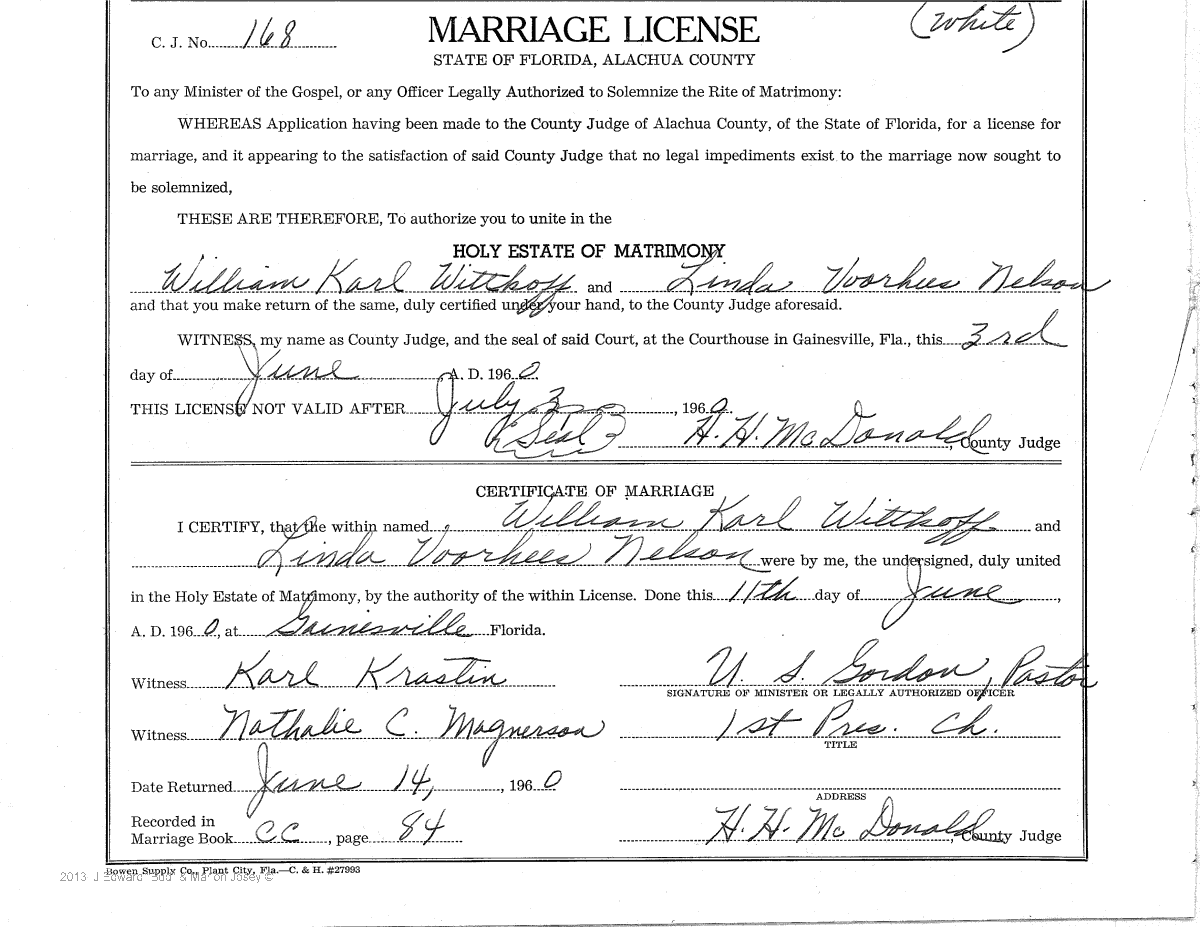 C. J. No. 168
MARRIAGE LICENSE
(White)
STATE OF FLORIDA, ALACHUA COUNTY
To any Minister of the Gospel, or any Officer Legally Authorized to Solemnize the Rite of Matrimony:
WHEREAS Application having been made to the County Judge of Alachua County, of the State of Florida, for a license for
marriage, and it appearing to the satisfaction of said County Judge that no legal impediments exist to the marriage now sought to
be solemnized,
THESE ARE THEREFORE, To authorize you to unite in the
HOLY ESTATE OF MATRIMONY
William Karl Witthoff and Linda Voorhees Nelson
and that you make return of the same, duly certified under your hand, to the County Judge aforesaid.
WITNESS, my name as County Judge, and the seal of said Court, at the Courthouse in Gainesville, Fla., this 3rd
day of June, A. D. 1960.
THIS LICENSE NOT VALID AFTER July 3, 1960.
Seal H. H. McDonald, County Judge
CERTIFICATE OF MARRIAGE
I CERTIFY, that the within named William Karl Witthoff and
Linda Voorhees Nelson were by me, the undersigned, duly united
in the Holy Estate of Matrimony, by the authority of the within License. Done this 11th day of June,
A. D. 1960, at Gainesville Florida.
Witness Karl Krastin
U. S. Gordon, Pastor
SIGNATURE OF MINISTER OR LEGALLY AUTHORIZED OFFICER
Witness Nathalie C. Magnerson
1st Pres. Ch.
TITLE
Date Returned June 14, 1960
ADDRESS
Recorded in
Marriage Book CC, page 84
H. H. McDonald, County Judge
Bowen Supply Co., Plant City, Fla.—C. & H. #27993
2013 J Edward & Josey ©